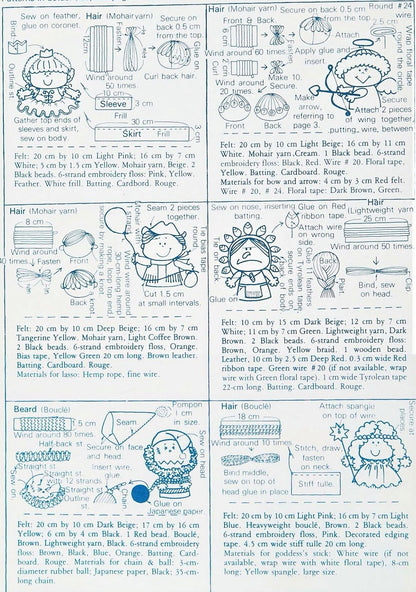 Sew on feather,
glue on coronet.
Bind
Outline st
Gather top ends of
sleeves and skirt,
sew on body.
Hair (Mohair yarn)
Secure on
back 0.5 cm
from the top.
Wind around
50 times.
Curl back hair.
Glue on
10 cm
Sleeve
3 cm
Frill
30 cm
Skirt
Frill
3 cm
Felt: 20 cm by 10 cm Light Pink; 16 cm by 7 cm
White; 5 cm by 1.5 cm Yellow. Mohair yarn, Beige. 2
Black beads. 6-strand embroidery floss: Pink, Yellow,
Feather. White frill. Batting. Cardboard. Rouge.
Hair (Mohair yarn)
Front & Back
Secure on
back 0.5 cm
from the top.
6 cm
Wind around 60 times.
Fasten
Apply glue and
insert.
Curl
2 cm
Wind around
20 times.
Make 10.
Secure.
Front
Back
Make
arrow,
referring to
page 3.
Attach
Round # 24
wire.
2.5 cm
Secure
Attach 2 pieces
of wing together,
putting wire between
Felt: 20 cm by 10 cm Light Beige; 16 cm by 11 cm
White. Mohair yarn, Cream. 1 Black bead. 6-strand
embroidery floss: Black, Red. Wire # 20. Floral tape,
Yellow. Batting. Cardboard. Rouge.
Materials for bow and arrow: 4 cm by 3 cm Red felt.
Wire # 20, # 24. Floral tape: Dark Brown, Green.
Hair (Mohair yarn)
8 cm
Wind around
Fasten
Front
Back
Sew on back
Sew 2 pieces
together.
30 cm long hemp
Cut 1.5 cm
at small intervals.
Felt: 20 cm by 10 cm Deep Beige; 16 cm by 7 cm
Tangerine Yellow. Mohair yarn, Light Coffee Brown.
2 Black beads. 6-strand embroidery floss, Orange.
Bias tape, Yellow Green 20 cm long. Brown leather.
Batting. Cardboard. Rouge.
Materials for lasso: Hemp rope, fine wire.
Sew on nose, inserting
batting.
Glue on Red
ribbon tape.
Tie on back
Glue on
Glue 11 feathers
on Tyrolean tape,
secure ends on
back
Hair
(Lightweight yarn)
25 cm
Attach wire
on wrong
side.
Wind around 50 times.
Back
Plait
Bind, sew
on head.
Clip
Felt: 10 cm by 15 cm Dark Beige; 12 cm by 7 cm
White; 11 cm by 7 cm Green. Lightweight yarn, Dark
Brown. 2 Black beads. 6-strand embroidery floss:
Brown, Orange. Yellow braid. 1 wooden bead.
Leather, 10 cm by 2.5 cm Deep Red. 0.3 cm wide Red
ribbon tape. Green wire # 20 (if not available, wrap
wire with Green floral tape). 1 cm wide Tyrolean tape
22-cm long. Batting. Cardboard. Rouge.
Beard (Bouclé)
7.5 cm
Wind around 80 times.
Half-back st.
Straight st.
Straight st.
with 12 strands.
Straight st.
Outline
st
Sew on
Seam
Secure on face
and head.
Insert wire,
glue.
Chain
Pompon
1 cm
in size.
Sew on head
Glue on
Japanese paper.
Felt: 20 cm by 10 cm Dark Beige; 17 cm by 16 cm
Yellow; 6 cm by 4 cm Black. 1 Red bead. Bouclé,
Brown. Lightweight yarn, Black. 6-strand embroidery
floss: Brown, Black, Blue, Orange. Batting. Card-
board. Rouge. Materials for chain & ball: 3-cm-
diameter rubber ball; Japanese paper, Black; 35-cm-
long chain.
Hair (Bouclé)
18 cm
Wind around 10 times.
Bind middle,
sew on top of
head glue in place
Attach spangle
on top of wire.
Stitch, draw,
fasten on
neck.
Stiff tulle.
Secure in
places
Felt: 20 cm by 10 cm Light Pink; 16 cm by 7 cm Light
Blue. Heavyweight bouclé, Brown. 2 Black beads.
6-strand embroidery floss, Pink. Decorated edging
tape. 4.5 cm wide stiff tulle 20 cm long.
Materials for goddess's stick: White wire (if not
available, wrap wire with white floral tape), 8-cm
long; Yellow spangle, large size.